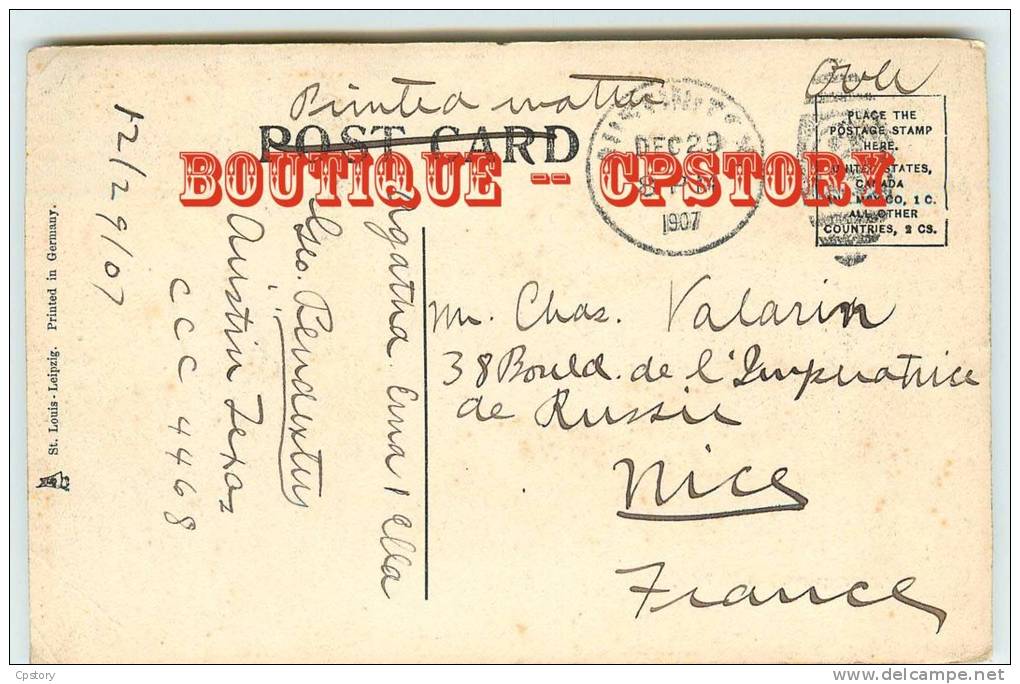 Over
Printed matter
POST CARD
PLACE THE
POSTAGE STAMP
HERE.
UNITED STATES,
CANADA
AND MEXICO, 1 C.
ALL OTHER
COUNTRIES, 2 CS.
DEC 29
1907
BOUTIQUE -- CPSTORY
Mr. Chas. Valarin
38 Bould. de l'Imperatrice
de Russie
Nice
France
Agatha Erna & Ella
Geo.
Austin Texas
CCC 4468
12/29/07
St. Louis - Leipzig. Printed in Germany.
Cpstory
www.delcampe.net